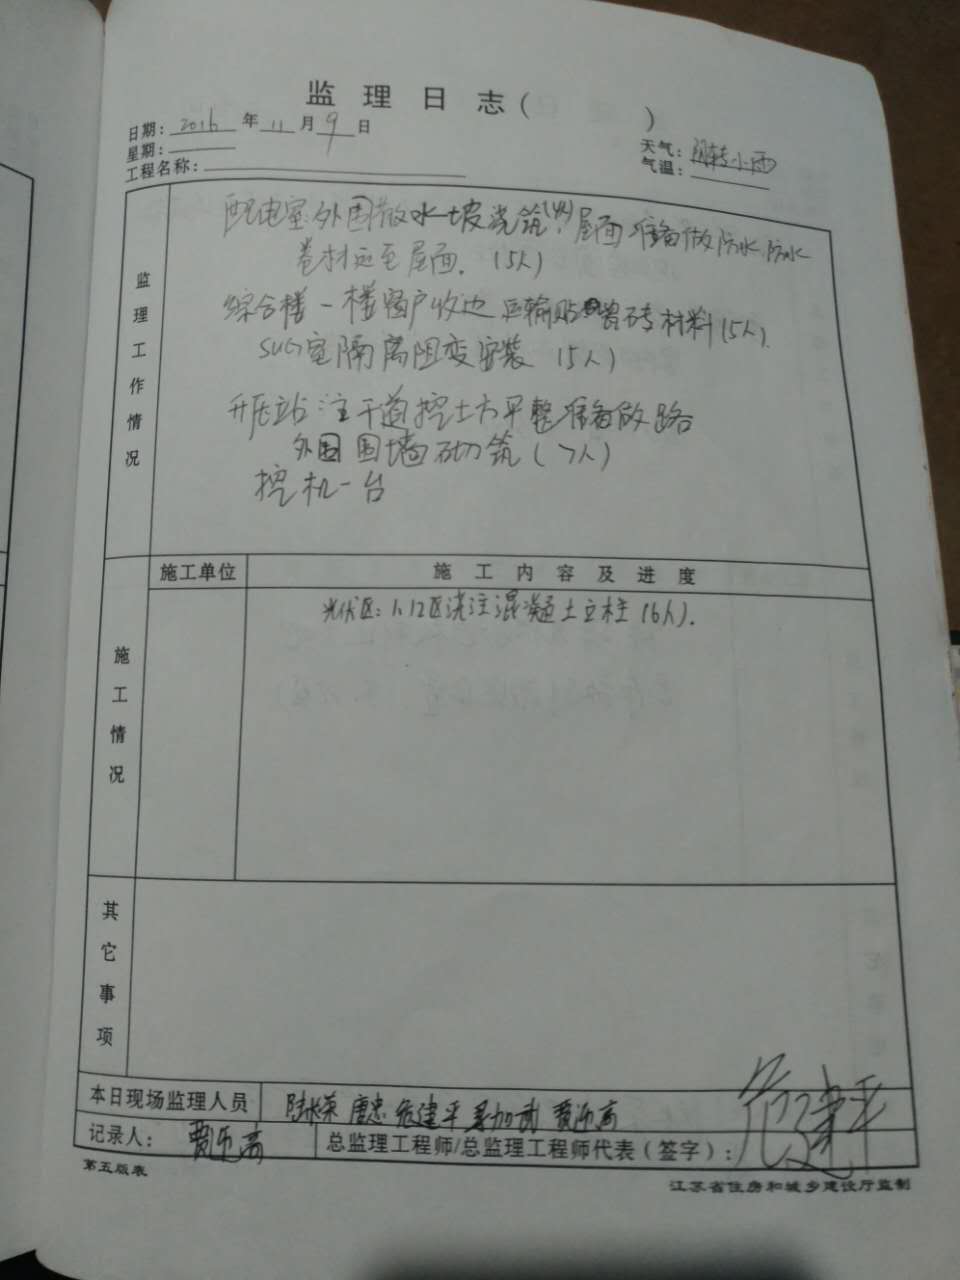 监理日志（ ）
日期：2016年11月9日
天气：阴转小雨
星期：
气温：
工程名称：
监理工作情况
配电室：外围散水坡浇筑，屋面准备做防水，防水
卷材运至屋面．（5人）
综合楼一楼窗户收边 运输贴瓷砖材料（5人）．
SVG室隔离阻变安装（5人）
升压站：主干道挖土方平整准备做路
外围围墙砌筑（7人）
挖机一台
施工单位
施工内容及进度
施工情况
光伏区：1.12区浇注混凝土立柱（6人）．
其它事项
本日现场监理人员
唐忠 危建平
记录人：
总监理工程师/总监理工程师代表（签字）：危建平
第五版表
江苏省住房和城乡建设厅监制